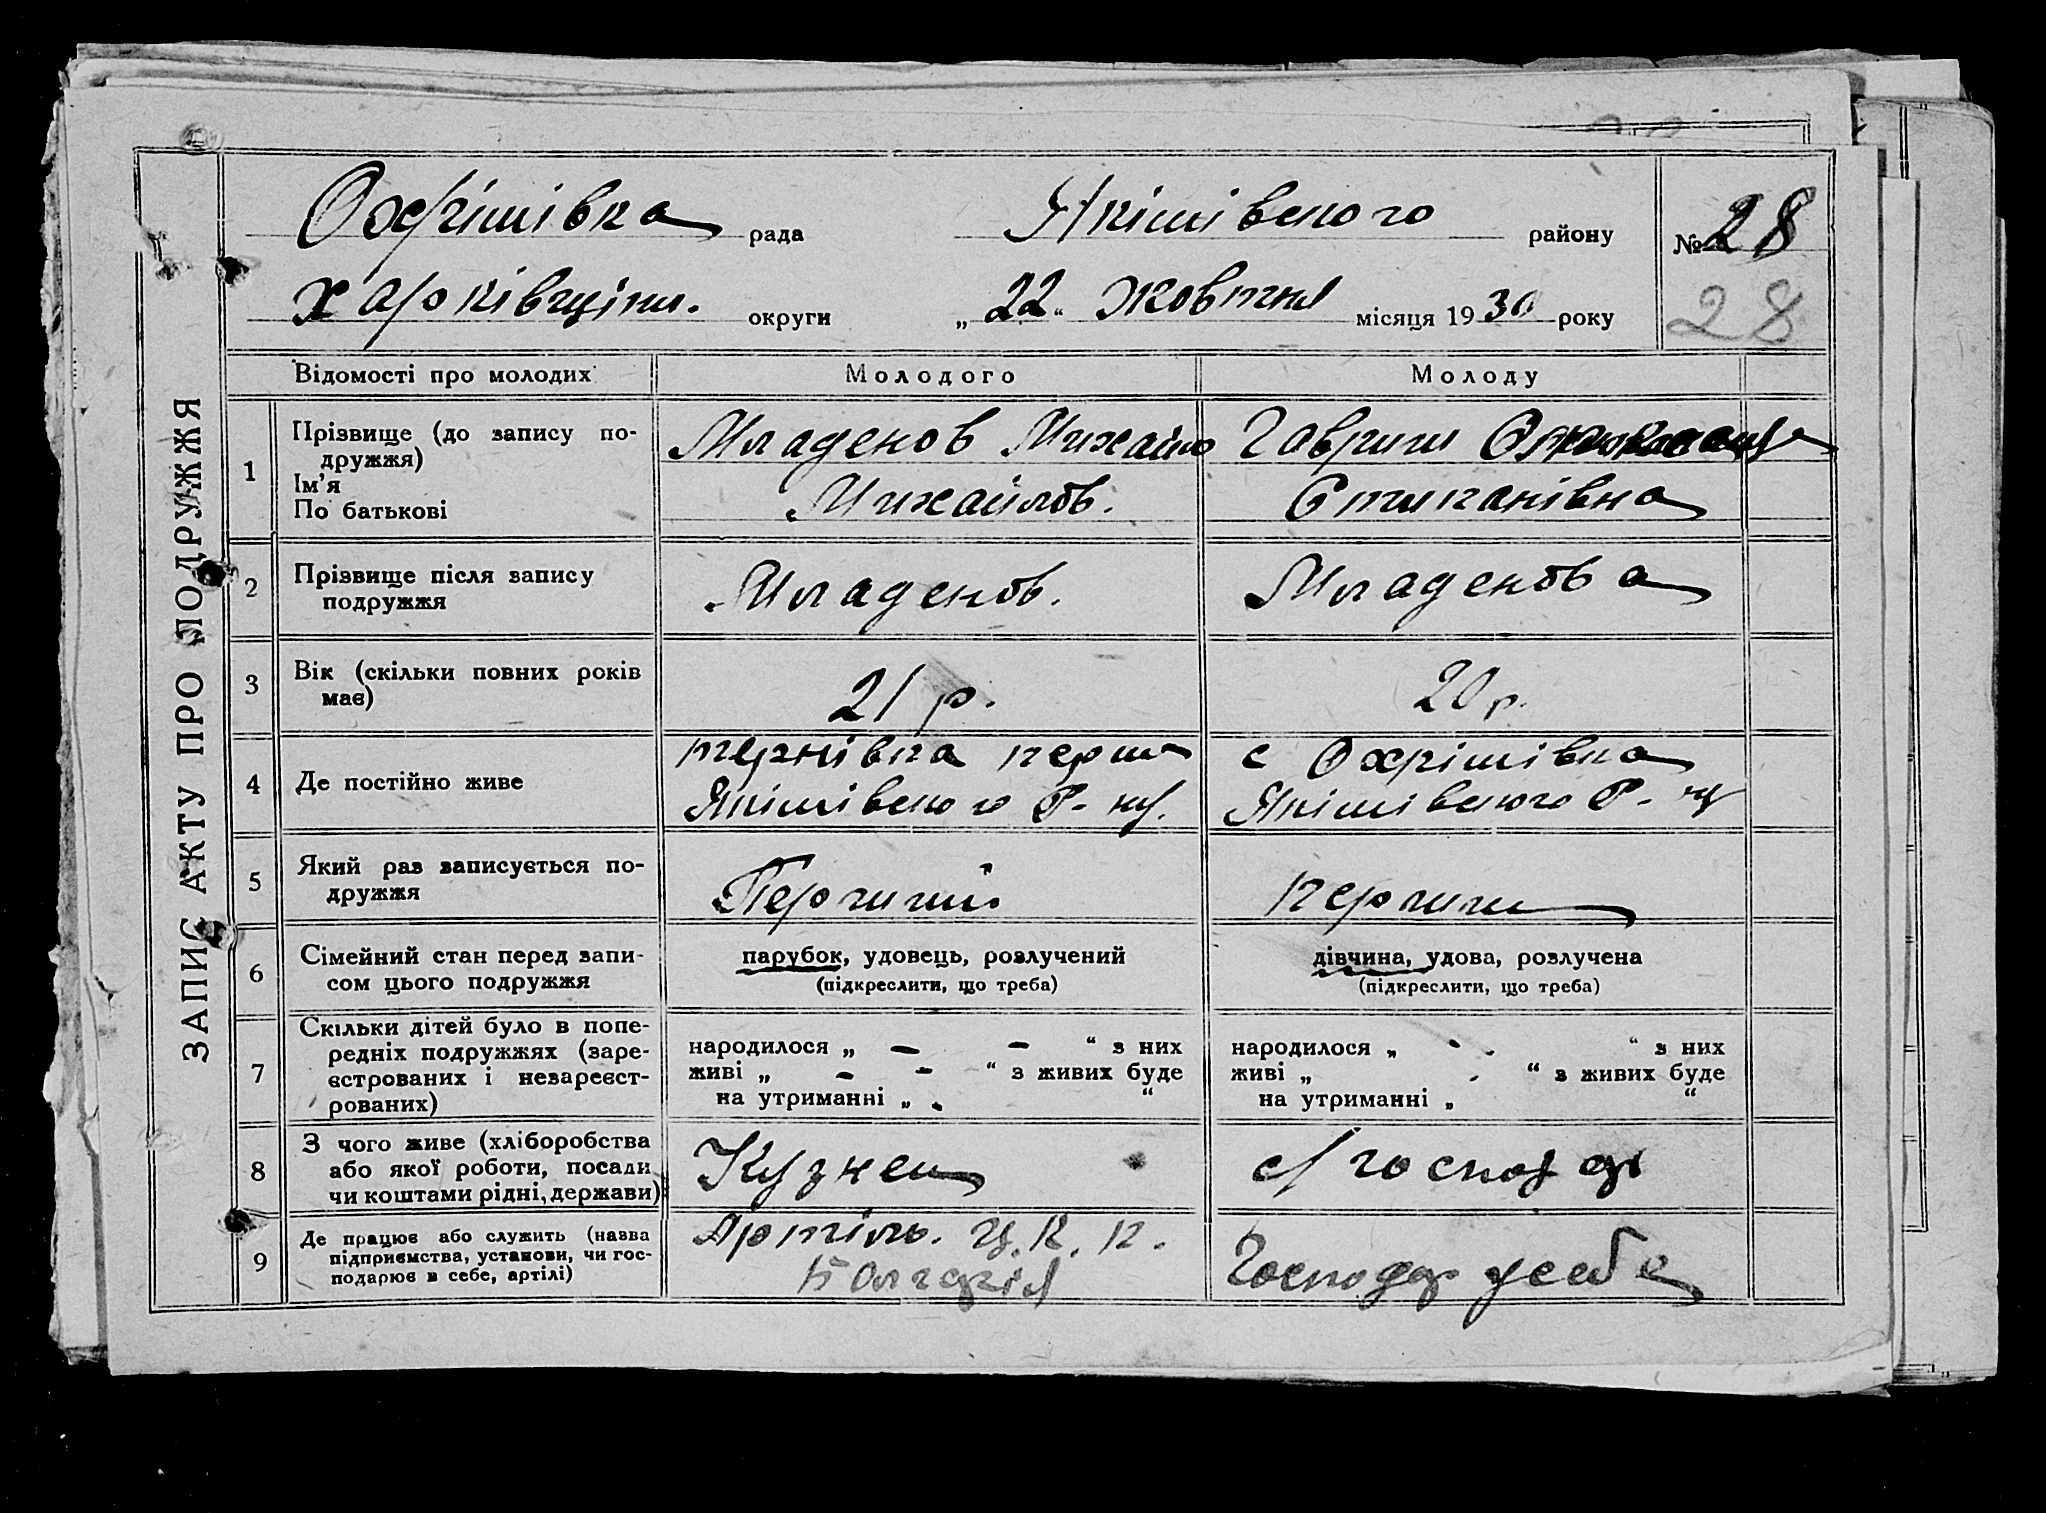 ЗАПИС АКТУ ПРО ПОДРУЖЖЯ
Охрімівка рада Якімівського району № 28
Харківщини. округи „22“ Жовтня місяця 1930 року 28
Відомості про молодих Молодого Молоду
1 Прізвище (до запису по-
дружжя)
Ім'я
По батькові
Младенов Михайло
Михайлов.
Гавриш
Стипанівна
2 Прізвище після запису
подружжя
Младенов.
Младенова
3 Вік (скільки повних років
має)
21 р.
20 р.
4 Де постійно живе
тернівка перша
Якімівського Р-ну.
с Охрімівка
Якімівського Р-ну
5 Який раз записується по-
дружжя
Перчиий
перчии
6 Сімейний стан перед запи-
сом цього подружжя
парубок, удовець, розлучений
(підкреслити, що треба)
дівчина, удова, розлучена
(підкреслити, що треба)
7 Скільки дітей було в попе-
редніх подружжях (заре-
єстрованих і незареєст-
рованих)
народилося „ — — “ з них
живі „ - - “ з живих буде
на утриманні „ “
народилося „ “ з них
живі „ “ з живих буде
на утриманні „ “
8 З чого живе (хліборобства
або якої роботи, посади
чи коштами рідні, держави)
Кузнец
с/господар
9 Де працює або служить (назва
підприємства, установи, чи гос-
подарює в себе, артілі)
Артіль.
Болгарія
Господар усебе